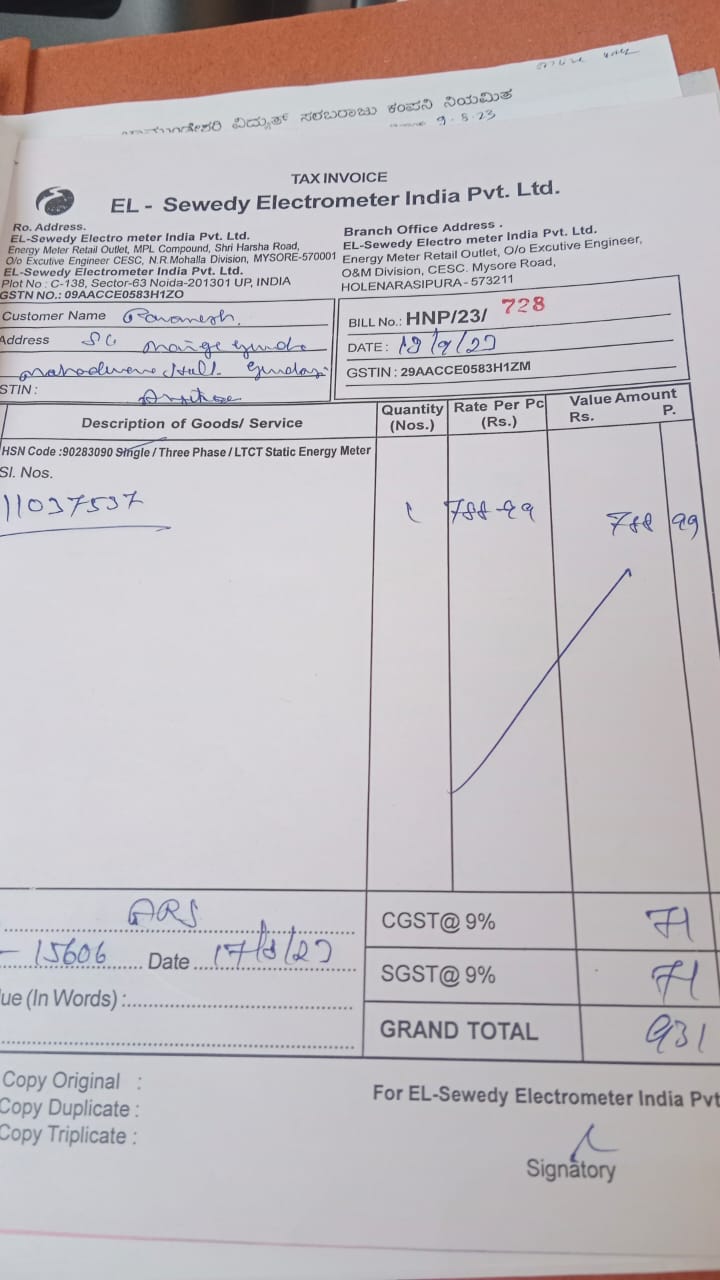 ವಿದ್ಯುತ್ ಸರಬರಾಜು ಕಂಪನಿ ನಿಯಮಿತ
9-8-23
TAX INVOICE
EL - Sewedy Electrometer India Pvt. Ltd.
Ro. Address.
EL-Sewedy Electro meter India Pvt. Ltd.
Energy Meter Retail Outlet, MPL Compound, Shri Harsha Road,
O/o Excutive Engineer CESC, N.R.Mohalla Division, MYSORE-570001
EL-Sewedy Electrometer India Pvt. Ltd.
Plot No : C-138, Sector-63 Noida-201301 UP, INDIA
GSTN NO.: 09AACCE0583H1ZO
Branch Office Address .
EL-Sewedy Electro meter India Pvt. Ltd.
Energy Meter Retail Outlet, O/o Excutive Engineer,
O&M Division, CESC. Mysore Road,
HOLENARASIPURA- 573211
Customer Name
Address
STIN :
BILL No.: HNP/23/ 728
DATE :
GSTIN : 29AACCE0583H1ZM
Description of Goods/ Service Quantity (Nos.) Rate Per Pc (Rs.) Value Amount Rs. P.
HSN Code :90283090 Single / Three Phase / LTCT Static Energy Meter
Sl. Nos.
11037537 1 788-99 788 99
ARS CGST@ 9% 71
15606 Date SGST@ 9% 71
ue (In Words) :
GRAND TOTAL 931
Copy Original :
Copy Duplicate :
Copy Triplicate :
For EL-Sewedy Electrometer India Pvt
Signatory